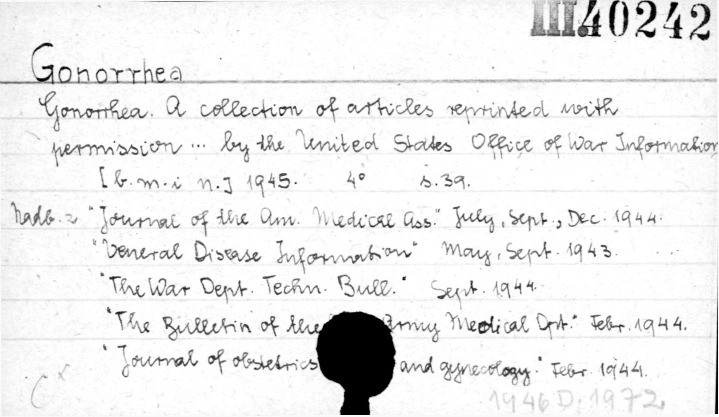 III.40242
Gonorrhea
Gonorrhea. A collection of articles reprinted with
permission ... by the United States Office of War Information
[b. m. i n.] 1945. 4° s. 39.
Nadb. z "Journal of the Am. Medical Ass." July, Sept., Dec. 1944.
"Veneral Disease Information" May, Sept. 1943.
"The War Dept. Techn. Bull." Sept. 1944.
"The Bulletin of the Army Medical Dpt." Febr. 1944.
"Journal of obstetrics and gynecology." Febr. 1944.
1946 D. 1972